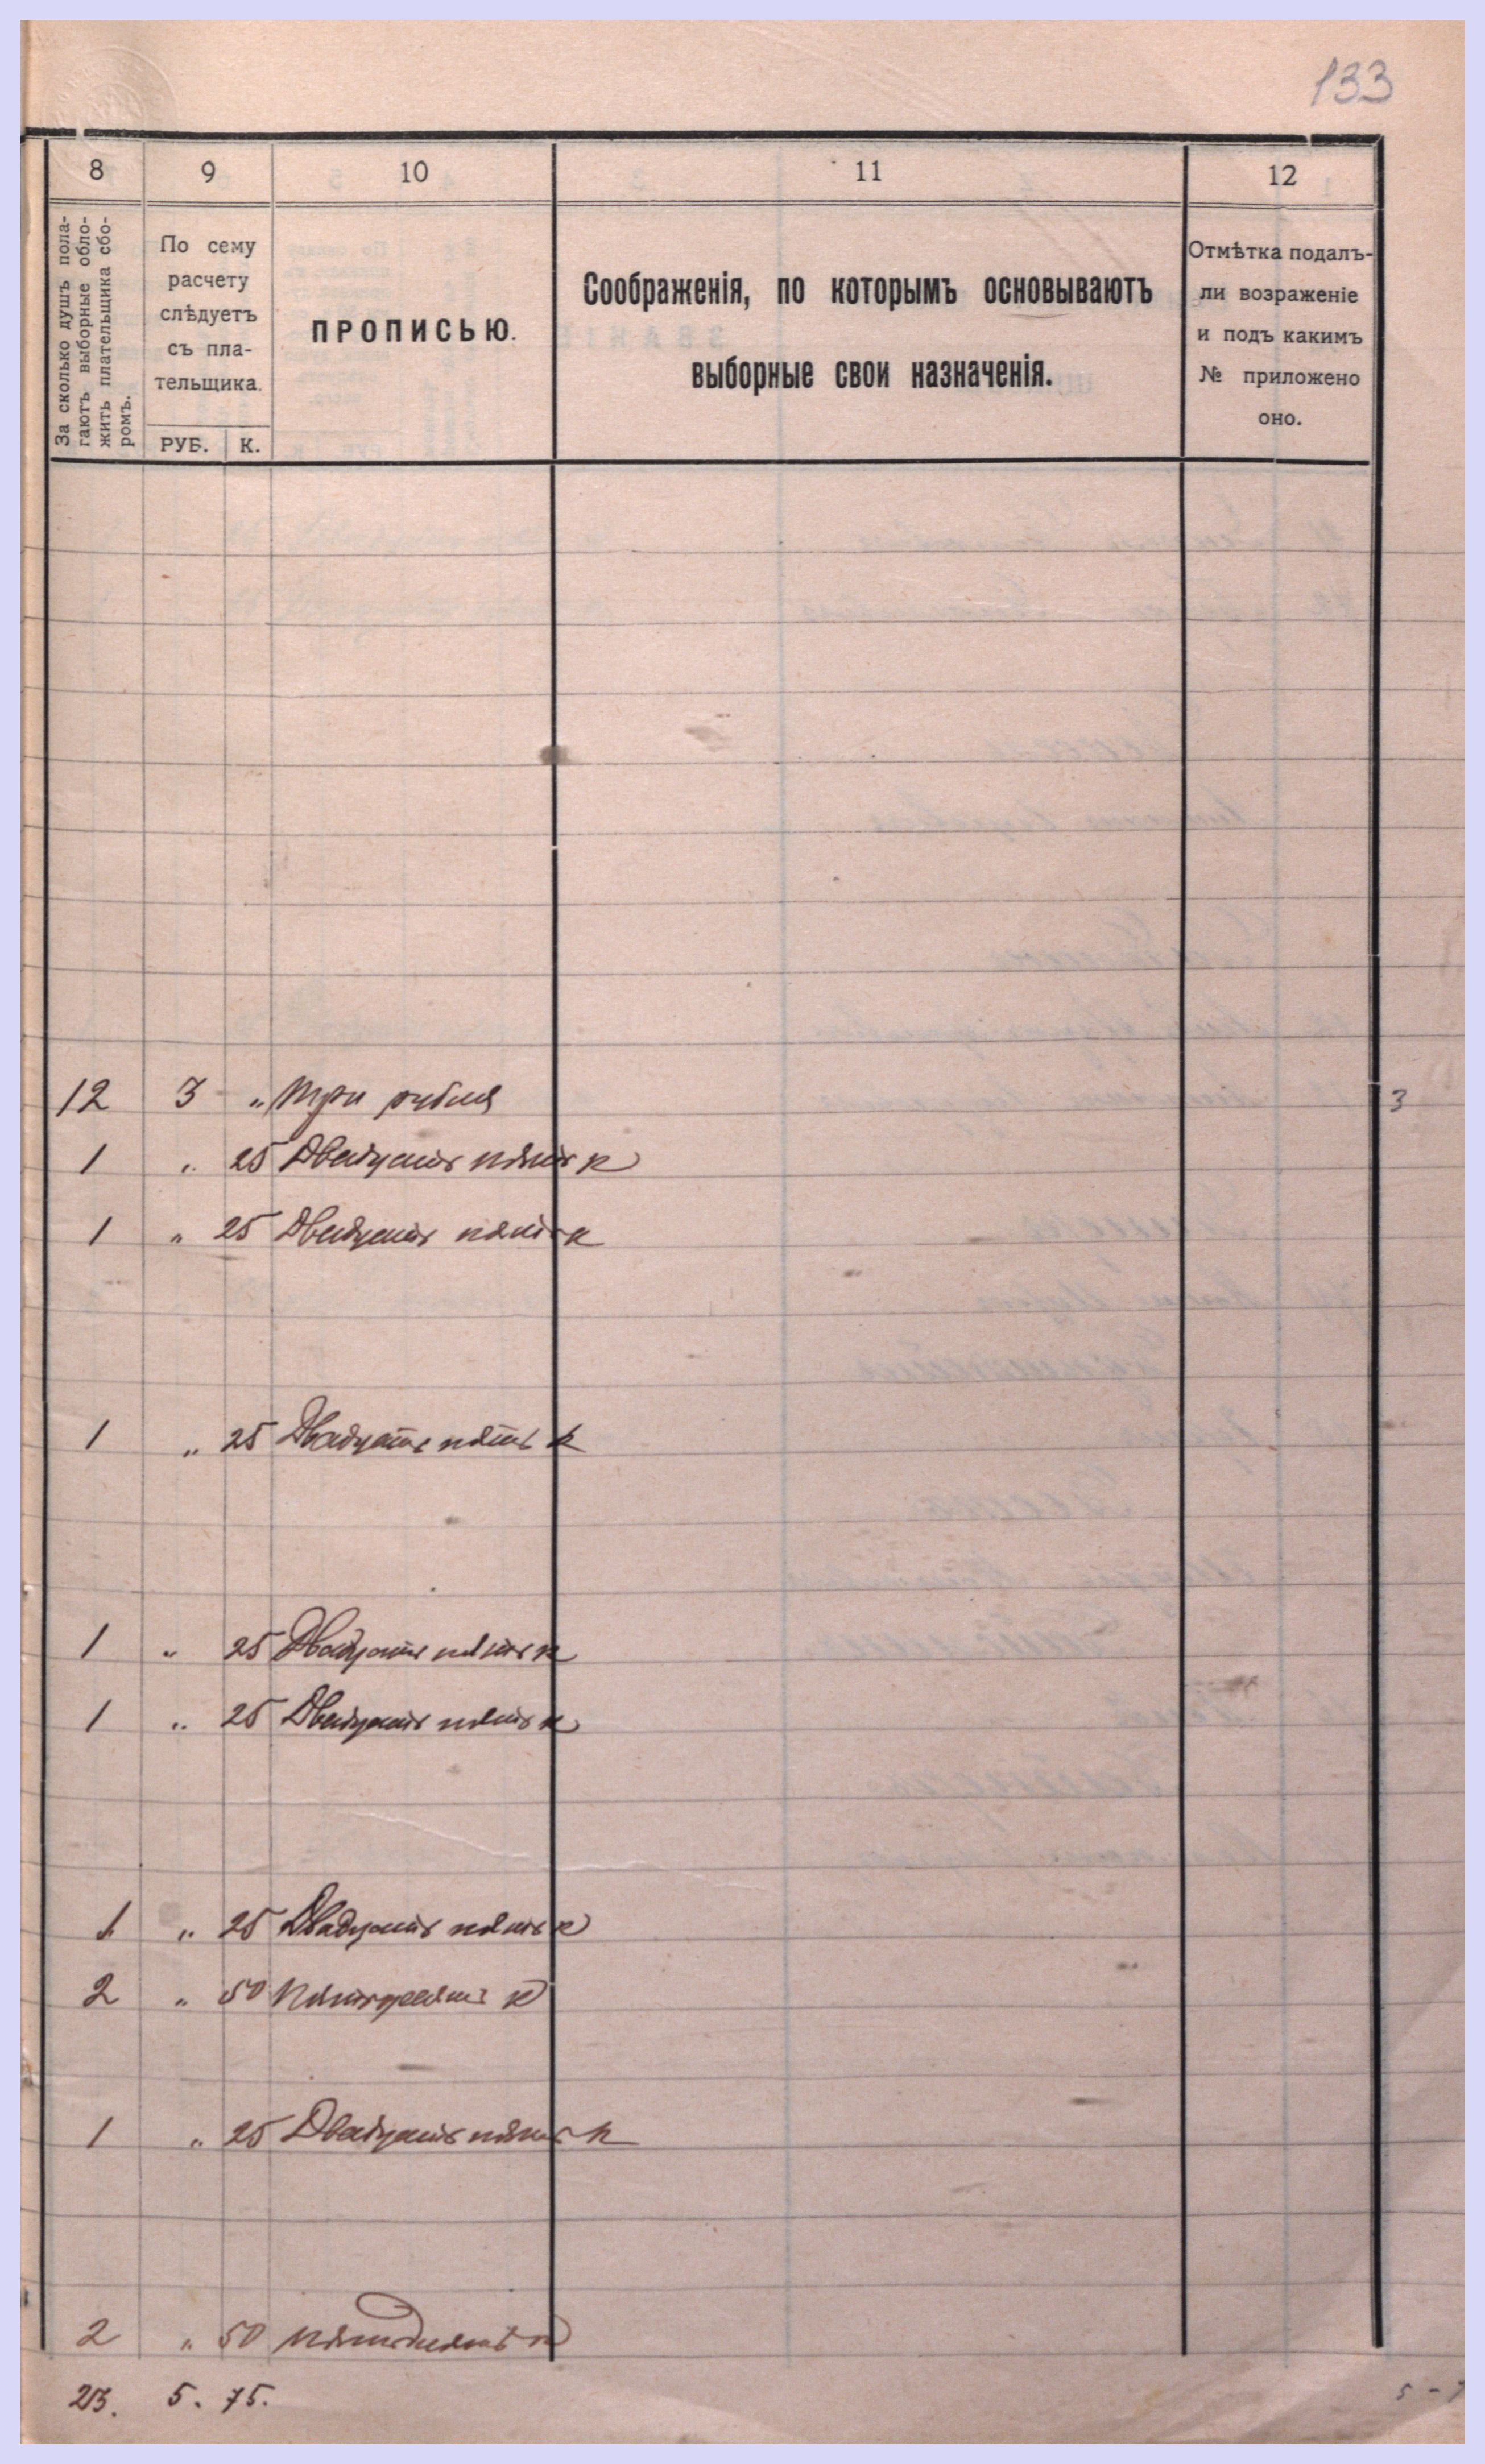 133
8 9 10 11 12
За сколько душъ пола-
гаютъ выборные обло-
жить плательщика сбо-
ромъ.
По сему
расчету
слѣдуетъ
съ пла-
тельщика.
РУБ. К.
ПРОПИСЬЮ.
Соображенія, по которымъ основываютъ
выборные свои назначенія.
Отмѣтка подалъ-
ли возраженіе
и подъ какимъ
№ приложено
оно.
12 3 „ Три рубля 3
1 „ 25 Двадцать пять к
1 „ 25 Двадцать пять к
1 „ 25 Двадцать пять к
1 „ 25 Двадцать пять к
1 „ 25 Двадцать пять к
1 „ 25 Двадцать пять к
2 „ 50 Пятьдесятъ к
1 „ 25 Двадцать пять к
2 „ 50 пятьдесятъ к
23. 5. 75. 5 - 7